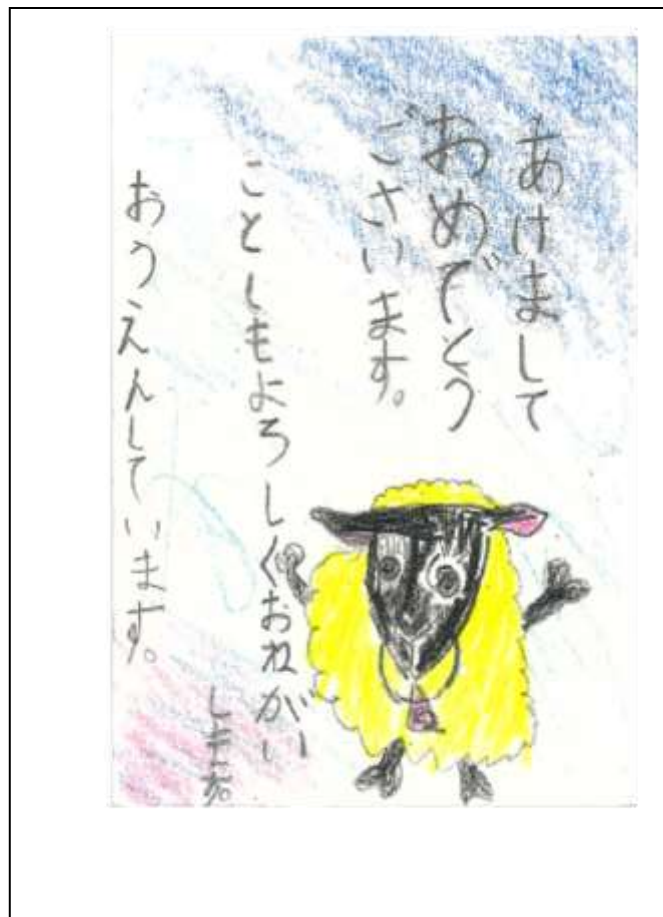 あけまして
おめでとう
ございます。
ことしもよろしくおねがい
します。
おうえんしています。